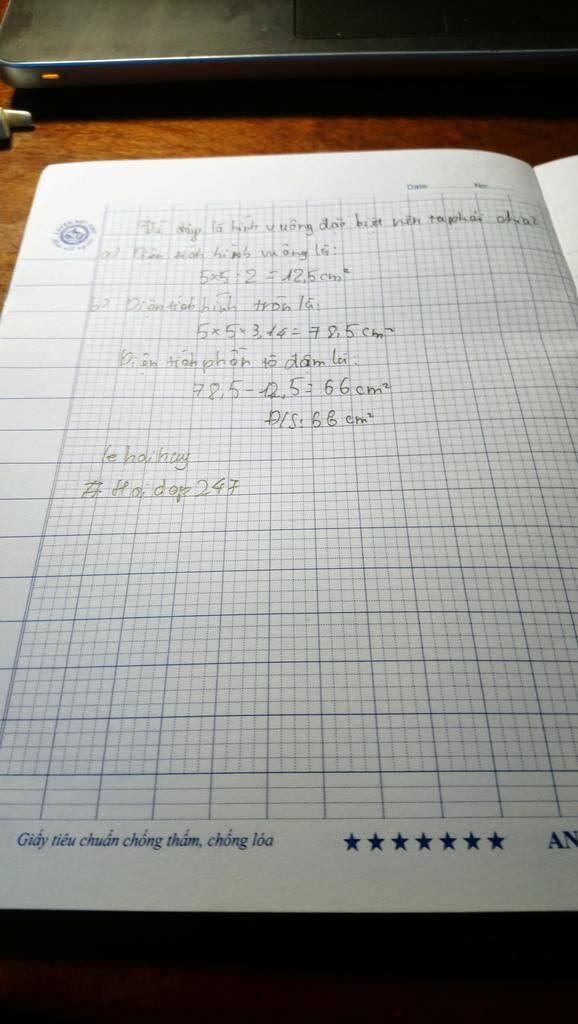 Date No
Vì đây là hình vuông đặc biệt nên ta phải chia 2
a) Diện tích hình vuông là:
5 x 5 : 2 = 12,5 cm²
b) Diện tích hình tròn là:
5 x 5 x 3,14 = 78,5 cm²
Diện tích phần tô đậm là:
78,5 - 12,5 = 66 cm²
Đ/S: 66 cm²
lehaihuy
# Hoidap247
Giấy tiêu chuẩn chống thấm, chống lóa ★★★★★★★ AN